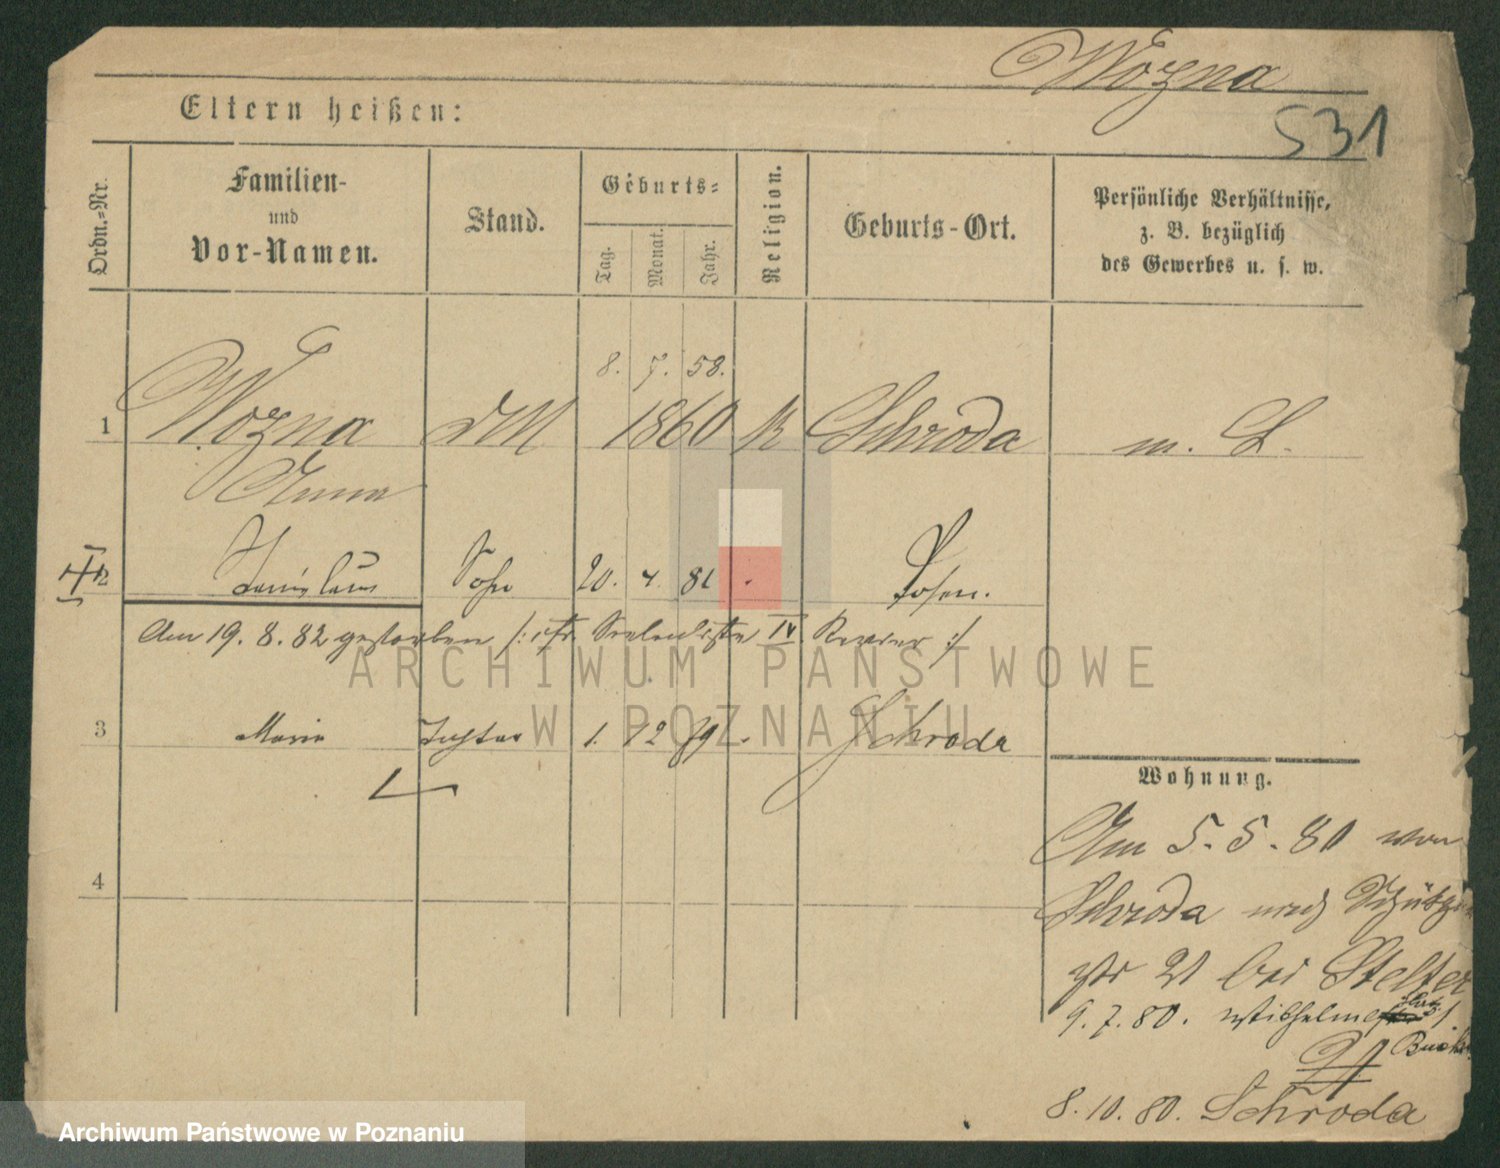 Wozna
531
Eltern heißen:
Ordn.=Nr.
Familien-
und
Vor-Namen.
Stand.
Geburts=
Tag.
Monat.
Jahr.
Religion.
Geburts-Ort.
Persönliche Verhältnisse,
z. B. bezüglich
des Gewerbes u. s. w.
8. 7. 58.
1 Wozna DM 1860 K Schroda m. L.
Anna
2 Stanislaus Sohn 20. 4. 81 Posen.
Am 19. 8. 82 gestorben /: cfr. Seelenliste IV Revier :/
ARCHIWUM PAŃSTWOWE
W POZNANIU
3 Marie Tochter 1. 12 79 Schroda
Wohnung.
Am 5. 5. 80 von
Schroda nach
4
str 21 bei Stelter
9. 7. 80.
21
8. 10. 80. Schroda
Archiwum Państwowe w Poznaniu